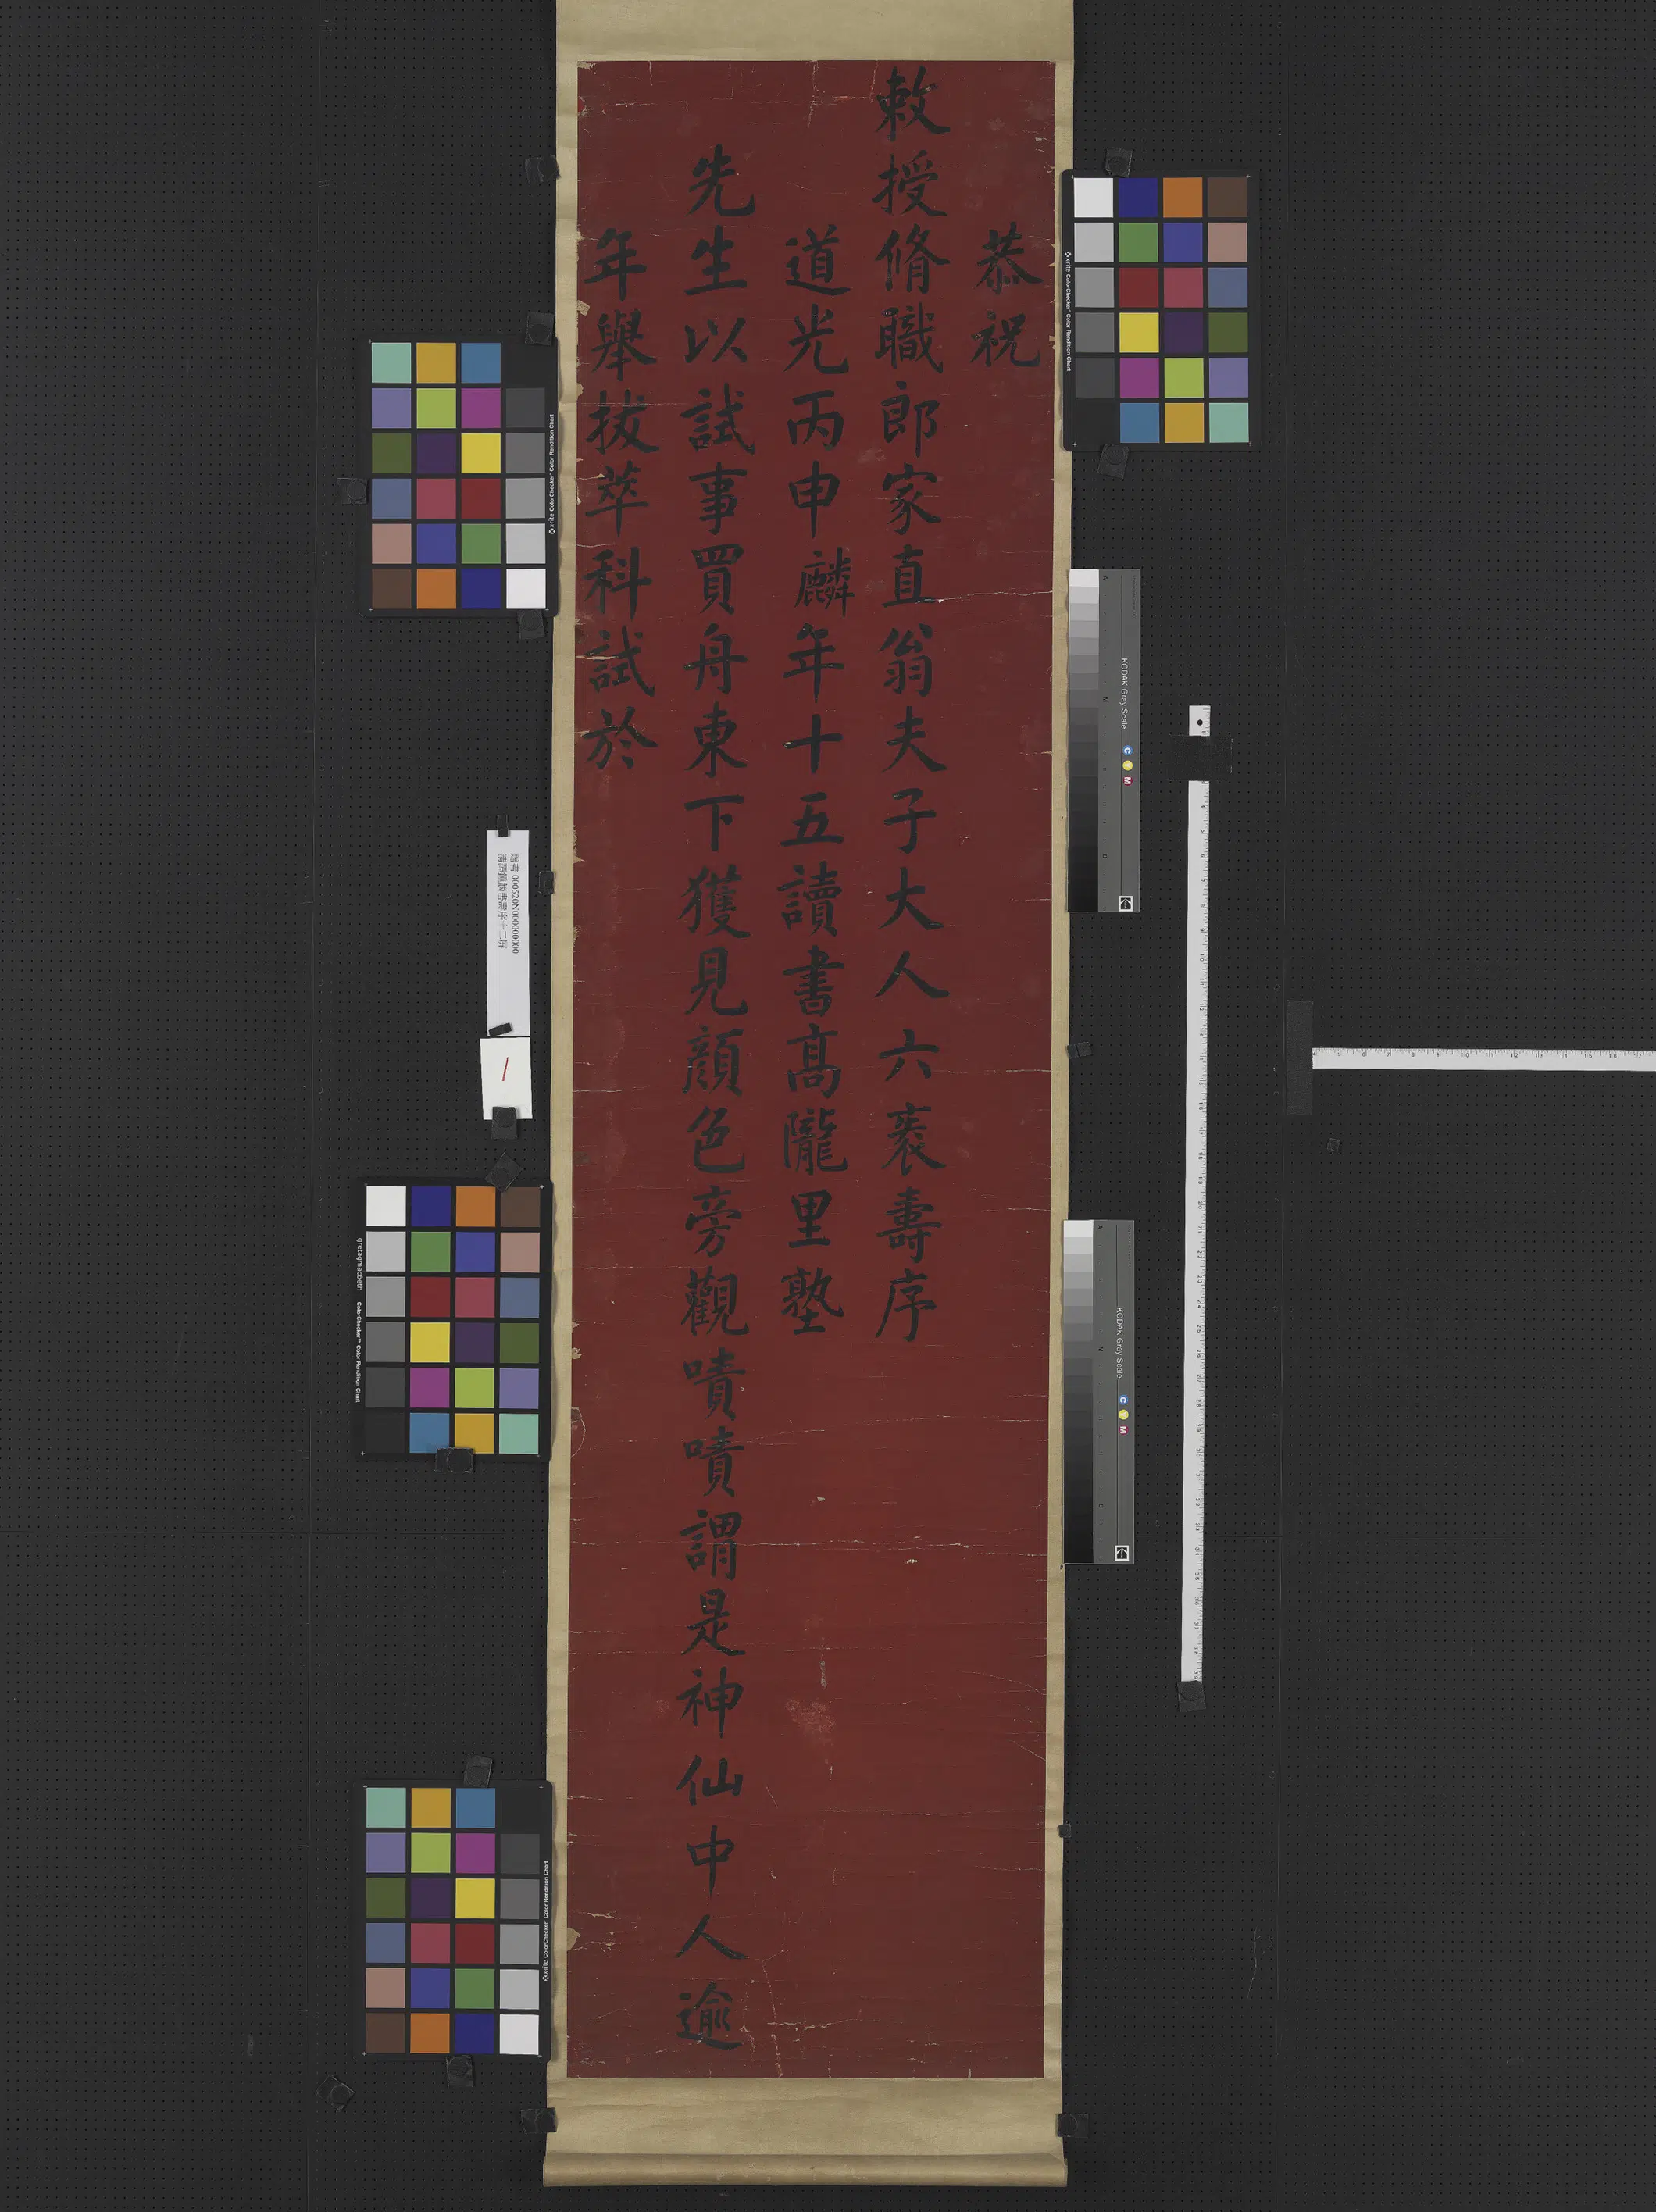 恭祝
敕授脩職郎家直翁夫子大人六袠壽序
道光丙申麟年十五讀書高隴里塾
先生以試事買舟東下獲見顔色旁觀嘖嘖謂是神仙中人逾
年舉拔萃科試於
000520N000000000
1
KODAK Gray Scale
C Y M
KODAK Gray Scale
C Y M
x-rite ColorChecker Color Rendition Chart
x-rite ColorChecker Color Rendition Chart
gretagmacbeth ColorChecker Color Rendition Chart
x-rite ColorChecker Color Rendition Chart